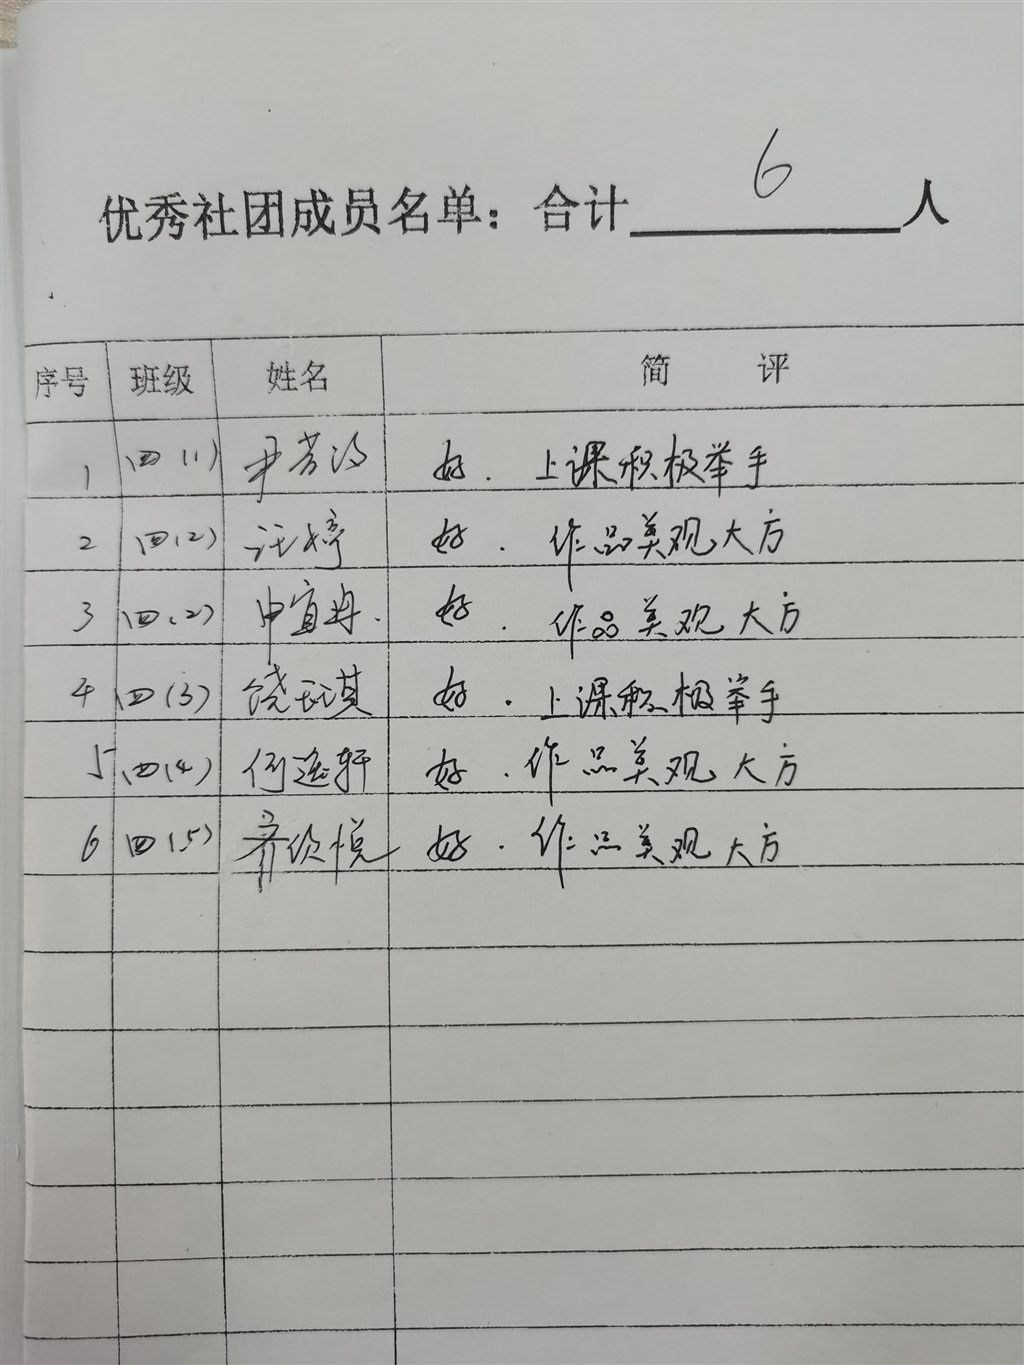 优秀社团成员名单：合计 6 人
序号 班级 姓名 简 评
1 四(1) 尹芳 好. 上课积极举手
2 四(2) 汪婷 好. 作品美观大方
3 四(2) 申宜冉. 好. 作品美观大方
4 四(3) 饶琪 好. 上课积极举手
5 四(4) 何逸轩 好. 作品美观大方
6 四(5) 齐欣悦 好. 作品美观大方